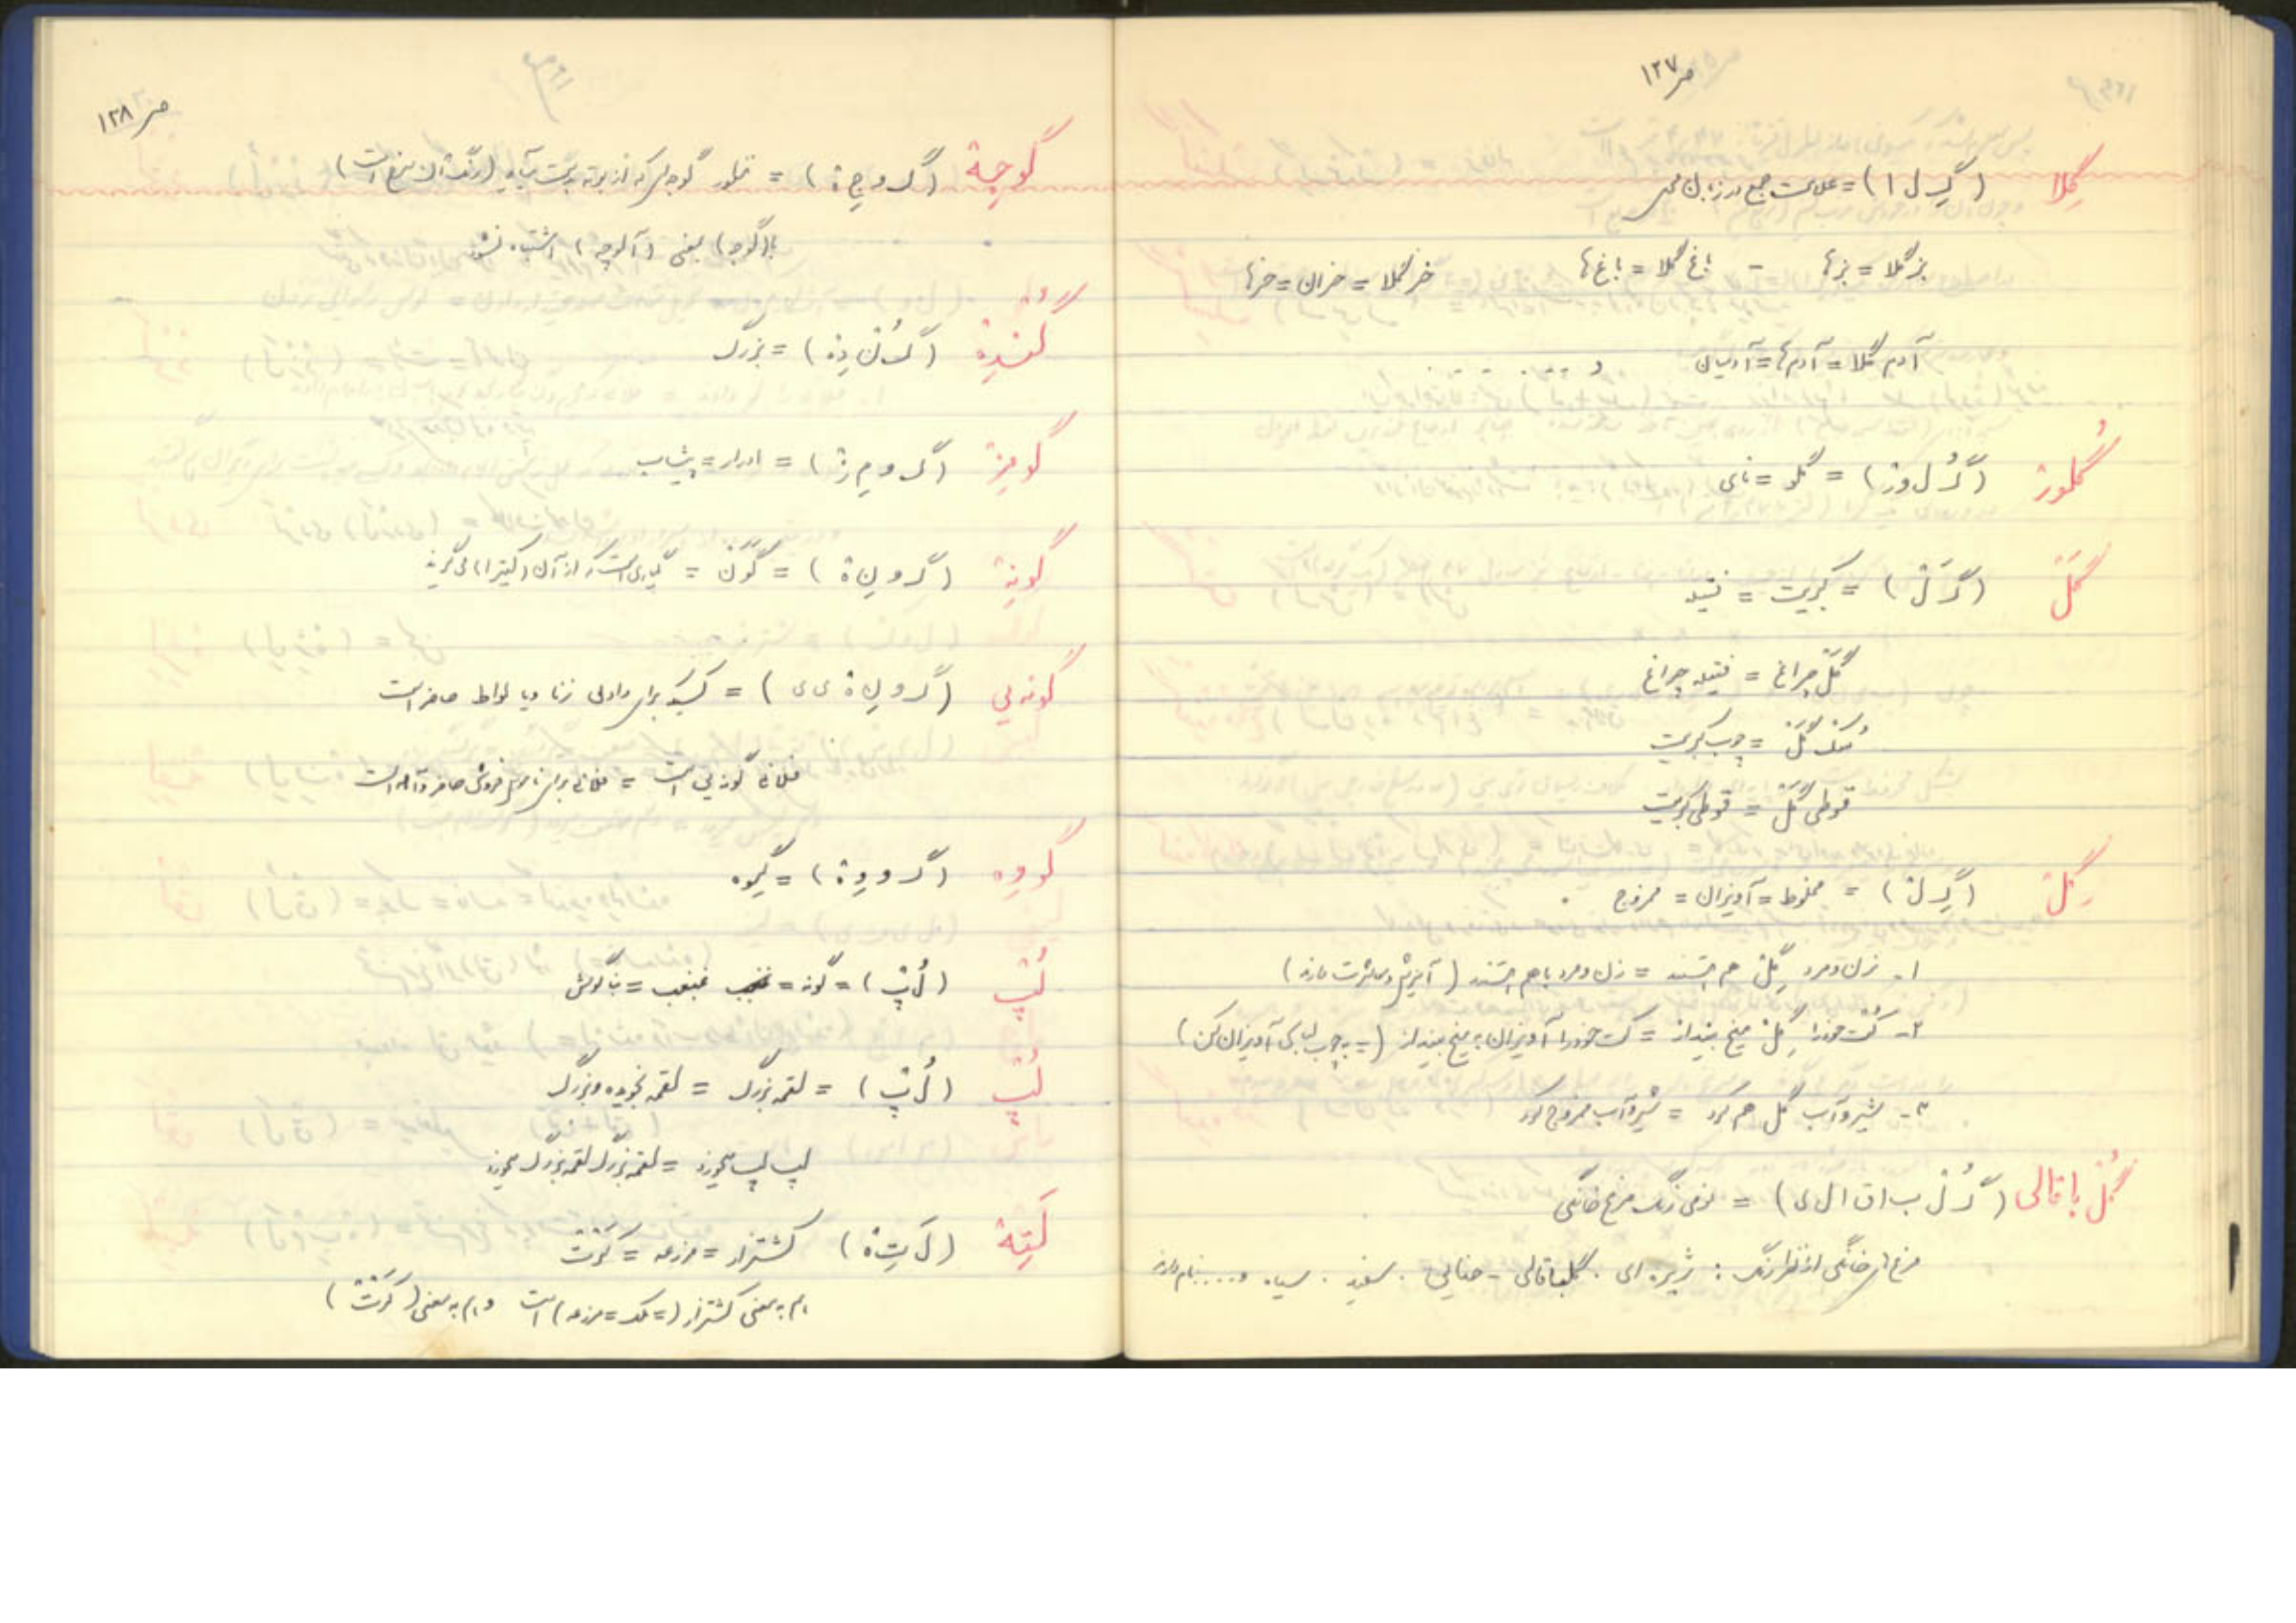 ص ۱۲۷
گِلا (گِ ل ا) = علامت جمع در زبان محلی
بزگلا = بزها - باغ گلا = باغ ها خرگلا = خران = خرها
آدم گلا = آدم ها = آدمیان و .........
گُلورْ (گُ ل و رْ) = گلو = نای
گَلّ (گَ لّ) = کبریت = فتیله
گَلّ چراغ = فتیله چراغ
گَلّ = چوب کبریت
قوطی گَلّ = قوطی کبریت
گِلْ (گِ لْ) = مخلوط = آویزان = ممزوج
۱- زن و مرد گِلْ هم هستند = زن و مرد با هم هستند (آمیزش و معاشرت دارند)
۲- کُت خود را گِلْ میخ بینداز = کت خود را آویزان به میخ بینداز (= به چوب لباسی آویزان کن)
۳- شیر و آب گِل هم کرد = شیر و آب ممزوج کرد
گُلْ باقالی (گُ لْ ب ا ق ا ل ی) = نوعی رنگ مرغ خانگی
مرغ های خانگی از نظر رنگ : زیره ای . گلباقالی - حنایی . سفید . سیاه و.... نام دارند
ص ۱۲۸
گوجِهْ (گ و جِ هْ) = گوجه ای که از بوته بدست میآید (رنگ آن سرخ است)
با (گوجه) بمعنی (آلوچه) اشتباه نشود
گُندِهْ (گُ نْ دِ هْ) = بزرگ
گومِزْ (گ و مِ زْ) = ادرار = پیشاب
گونِهْ (گ و نِ هْ) = گَوَنْ = گیاهی است که از آن (کتیرا) می گیرند
گونه یی (گ و نِ هْ ی ی) = کسیکه برای دادن زنا و یا لواط حاضر است
فلانی گونه یی است = فلانی برای ناموس فروشی حاضر و آماده است
گووه (گ و وِ هْ) = گیوه
لُپْ (لُ پْ) = گونه = غبغب = بناگوش
لُپْ (لُ پْ) = لقمه بزرگ = لقمه نجویده و بزرگ
لپ لپ میخورد = لقمه بزرگ لقمه بزرگ میخورد
لَتِهْ (لَ تِ هْ) کشتزار = مزرعه = کَرْتْ
هم به معنی کشتزار (= ملک = مزرعه) است و هم به معنی (کَرْتْ)